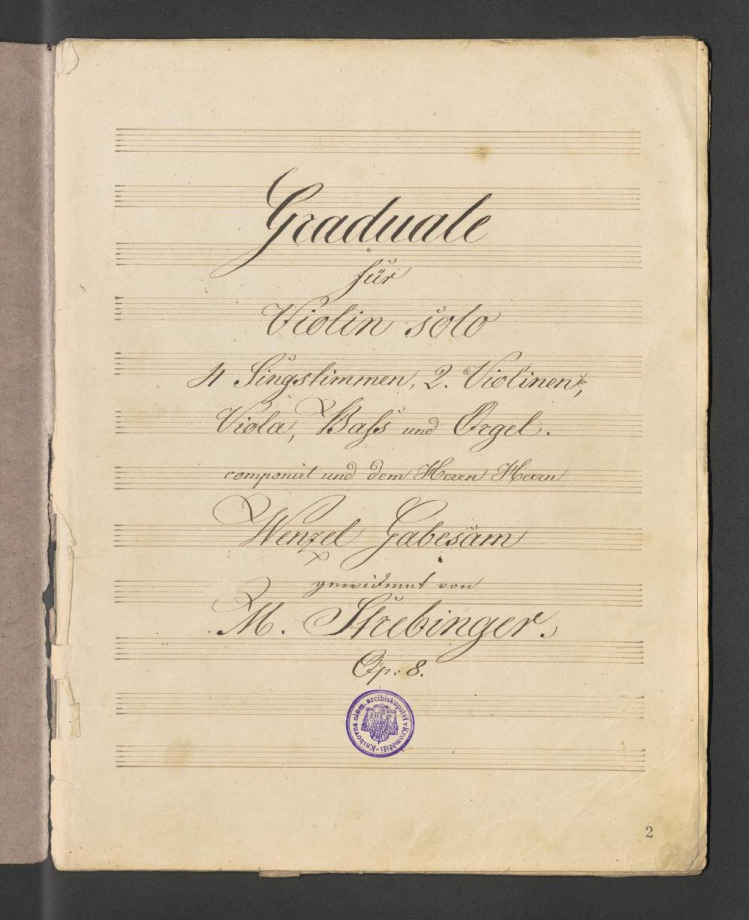 Graduale
für
Violin solo
4 Singstimmen, 2. Violinen,
Viola, Baſs und Orgel.
componirt und dem Herrn Herrn
Wenzel Gabesàm
gewidmet von
M. Strebinger.
Op: 8.
Knihovna olom. arcibiskupství v Kroměříži
2